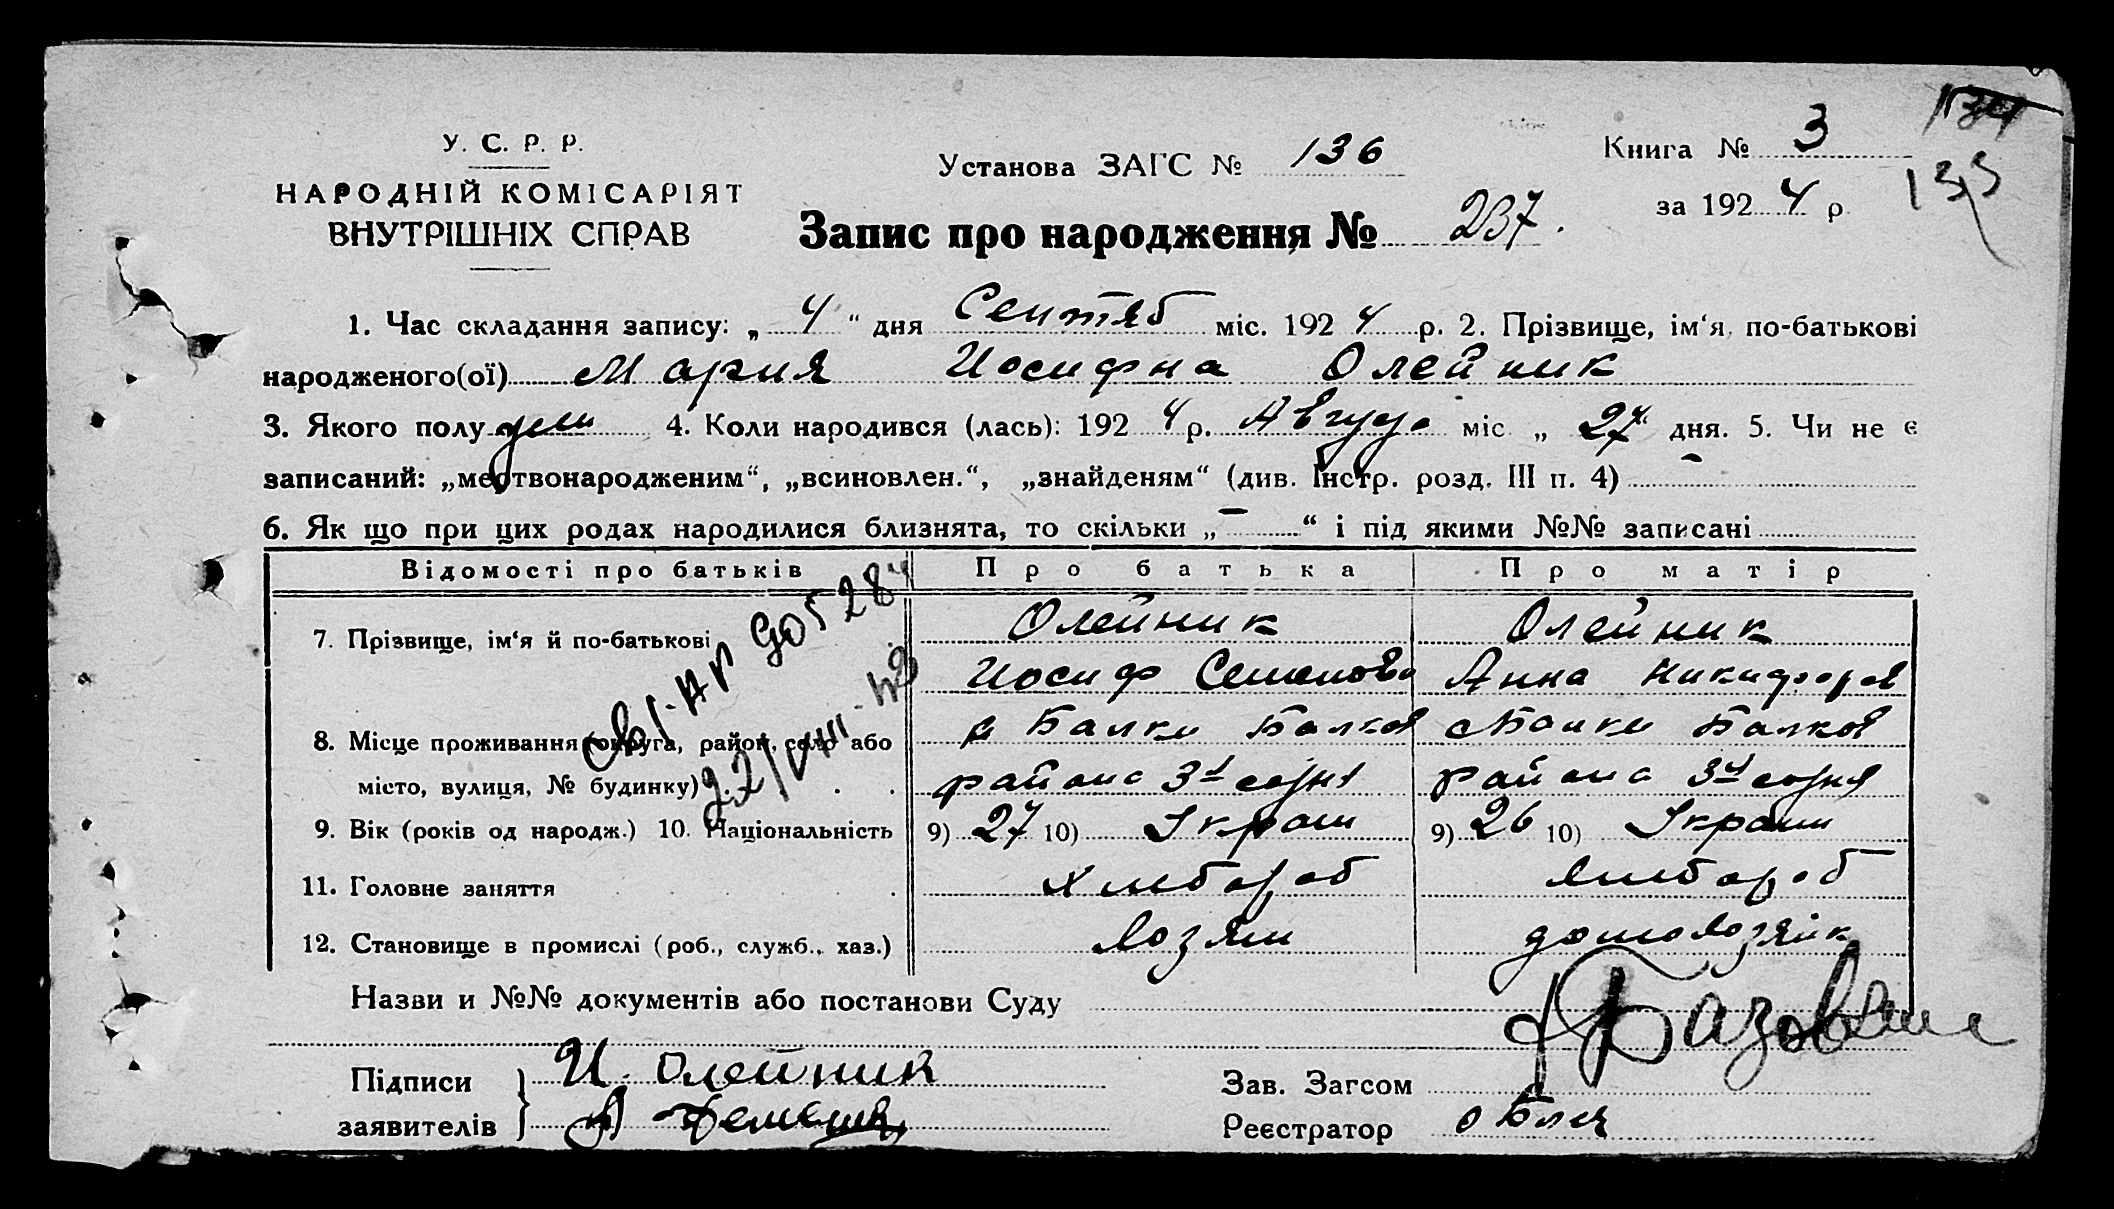 У. С. Р. Р.
НАРОДНІЙ КОМІСАРІЯТ
ВНУТРІШНІХ СПРАВ
Установа ЗАГС № 136
Книга № 3
за 1924 р.
135
Запис про народження № 237.
1. Час складання запису: „ 4 “ дня Сентяб міс. 1924 р. 2. Прізвище, ім‘я, по-батькові
народженого(ої) Мария Иосифна Олейник
3. Якого полу жен 4. Коли народився (лась): 1924 р. Август міс. „ 27 “ дня. 5. Чи не є
записаний: „мертвонародженим“, „всиновлен.“, „знайденям“ (див. Інстр. розд. III п. 4) –
6. Як що при цих родах народилися близнята, то скільки „ – “ і під якими №№ записані
Відомості про батьків Про батька Про матір
7. Прізвище, ім‘я й по-батькові Олейник Олейник
Иосиф Семенов Анна Никифоров
8. Місце проживання (округа, район, село або с Балки Балков с Балки Балков
місто, вулиця, № будинку) района 3й сотня района 3й сотня
9. Вік (років од народж.) 10. Національність 9) 27 10) Украин 9) 26 10) Украин
11. Головне заняття Хлебороб Хлебороб
12. Становище в промислі (роб., служб., хаз.) Хозяин домохозяйк
22/VIII-
Назви и №№ документів або постанови Суду
Підписи заявителів И. Олейник
Зав. Загсом
Реєстратор